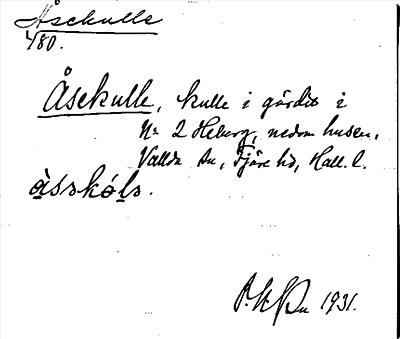 Åsekulle
480.
Åsekulle, kulle i gärdet i
Nr 2 Heberg, nedom husen,
Vallda sn, Fjäre hd, Hall. l.
àsskóls.
1931.